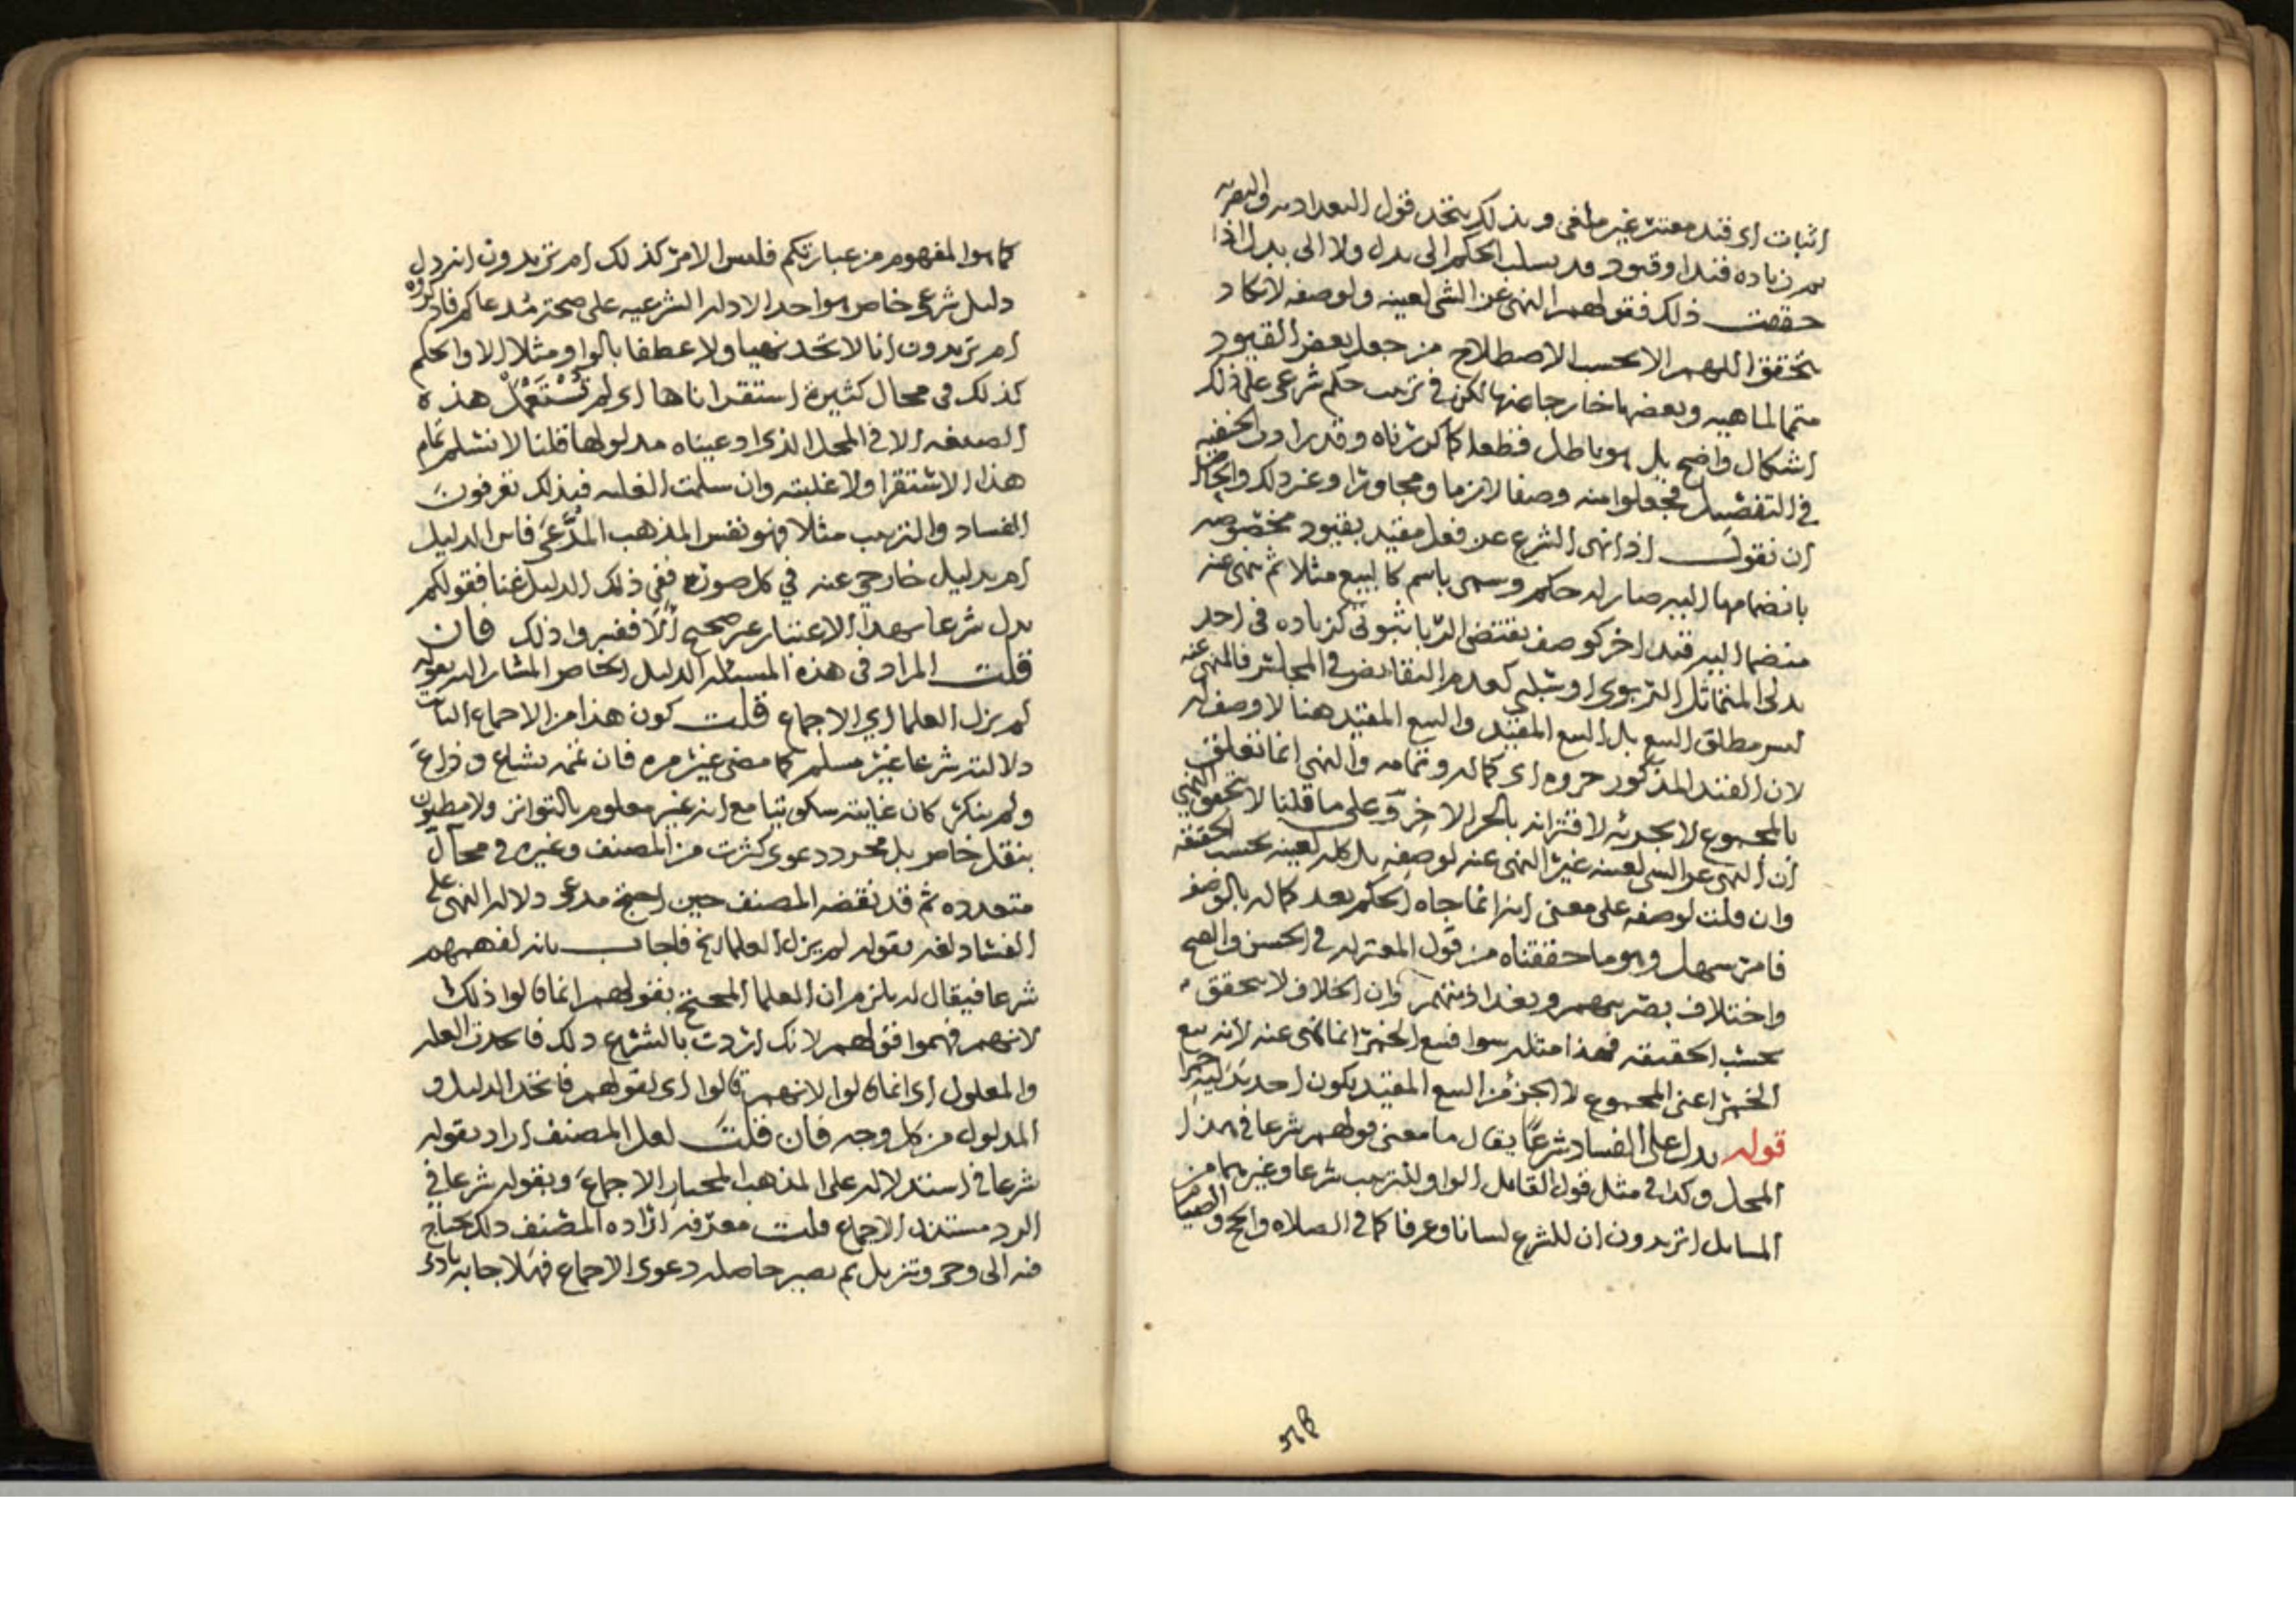 اثبات اى قيد معتبر غير ملغى وبذلك يتخد قول البغداديه والبصريه
زياده قيد او قيود وقد يسلب الحكم الى بدل ولا الى بدل اذا
حققت ذلك فقولهم النهى عن الشى لعينه ولوصفه لا يكاد
يتحقق اللهم الا بحسب الاصطلاح من جعل بعض القيود
متمما لماهيه وبعضها خارجا عنها لكن فى ترتب حكم شرعى على ذلك
اشكال واضح بل هو باطل قطعا كما كررناه وقد زادت الحنفيه
فى التفصيل فجعلوا منه وصفا لازما ومجاورا وغير ذلك والحاصل
ان نقول اذا نهى الشرع عن فعل مقيد بقيود مخصوصه
بانضمامها اليه صار له حكم وسمى باسم كالبيع مثلا ثم نهى عنه
منضما اليه قيد اخر كوصف يقتضى الربا ثبوتى كزياده فى احد
بدلى المتماثل الربوى او سلبى كعدم التقابض فى المجلس فالمنهى عنه
ليس مطلق البيع بل البيع المقيد والبيع المقيد هنا لا وصف له
لان القيد المذكور جزوه اى كماله وتمامه والنهى انما تعلق
بالمجموع لا بجزئه لاقترانه بالجزء الاخر وعلى ما قلنا لا يتحقق النهى
ان النهى عن الشى لعينه غير النهى عنه لوصفه بل كله لعينه بحسب الحقيقه
وان قلت لوصفه على معنى انه انما جاه الحكم بعد كماله بالوصف
فامر سهل وهو ما حققناه من قول المعتزله فى الحسن والقبح
واختلاف بصريهم وبغداديهم وان الخلاف لا يتحقق
بحسب الحقيقه فهذا مثله سوا فبيع الخمر انما نهى عنه لانه بيع
الخمر اعنى المجموع لا الجزء من البيع المقيد بكون احد بدليه خمرا
قوله يدل على الفساد شرعا يقال ما معنى قولهم شرعا فى هذا
المحل وكذا فى مثل قول القايل الواو للترتيب شرعا وغيرهما من
المسايل اتريدون ان للشرع لسانا وعرفا كما فى الصلاه والحج والصيام
كما هو المفهوم من عبارتكم فليس الامر كذلك ام تريدون انه دل
دليل شرعى خاص هو احد الادله الشرعيه على صحة مدعاكم فاذكروه
ام تريدون انا لا نجد نهيا ولا عطفا بالواو مثلا الا والحكم
كذلك فى محال كثيرة استقراناها اى لم تستعمل هذه
الصيغه الا فى المحل الذى ادعيناه مدلولها قلنا لا نسلم تمام
هذا الاستقرا ولا غلبته وان سلمت الغلبه فبذلك تعرفون
الفساد والترتيب مثلا فهو نفس المذهب المدعى فاين الدليل
ام بدليل خارجى عنه فى كل صورة ففى ذلك الدليل غنا فقولكم
يدل شرعا بهذا الاعتبار غير صحيح الا فغيروا ذلك فان
قلت المراد فى هذه المسئله الدليل الخاص المشار اليه بقوله
لم يزل العلما اي الاجماع قلت كون هذا من الاجماع الثابت
دلالته شرعا غير مسلم كما مضى غير مره فان غمه بشاع وذاع
ولم ينكر كان غايته سكوتيا مع انه غير معلوم بالتواتر ولا مظنون
بنقل خاص بل مجرد دعوى كثرت من المصنف وغيره فى محال
متعدده ثم قد نقضه المصنف حين احتج مدعى دلالة النهى على
الفساد لغه بقوله لم يزل العلما الخ فاجاب بانه لفهمهم
شرعا فيقال له يلزم ان العلما المحتج بقولهم انما قالوا ذلك
لانهم فهموا قولهم لانك اردت بالشرع ذلك فاتحدت العله
والمعلول اى انما قالوا لانهم قالوا اى لقولهم فاتحد الدليل و
المدلول من كل وجه فان قلت لعل المصنف اراد بقوله
شرعا فى استدلاله على المذهب المختار الاجماع وبقوله شرعا فى
الرد مستند الاجماع قلت معرفة ارادة المصنف ذلك يحتاج
فيه الى وحى وتنزيل ثم يصير حاصله دعوى الاجماع فهلا اجابه